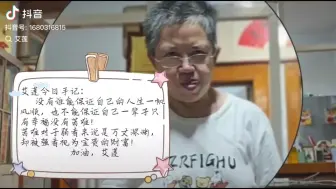 抖音
抖音号: 1680316815
艾莲
艾莲今日手记:
没有谁能保证自己的人生一帆
风顺,也不能保证自己一辈子只
有幸福没有苦难!
苦难对于弱者来说是万丈深渊,
却被强者视为宝贵的财富!
加油,艾莲
ERFIGHU